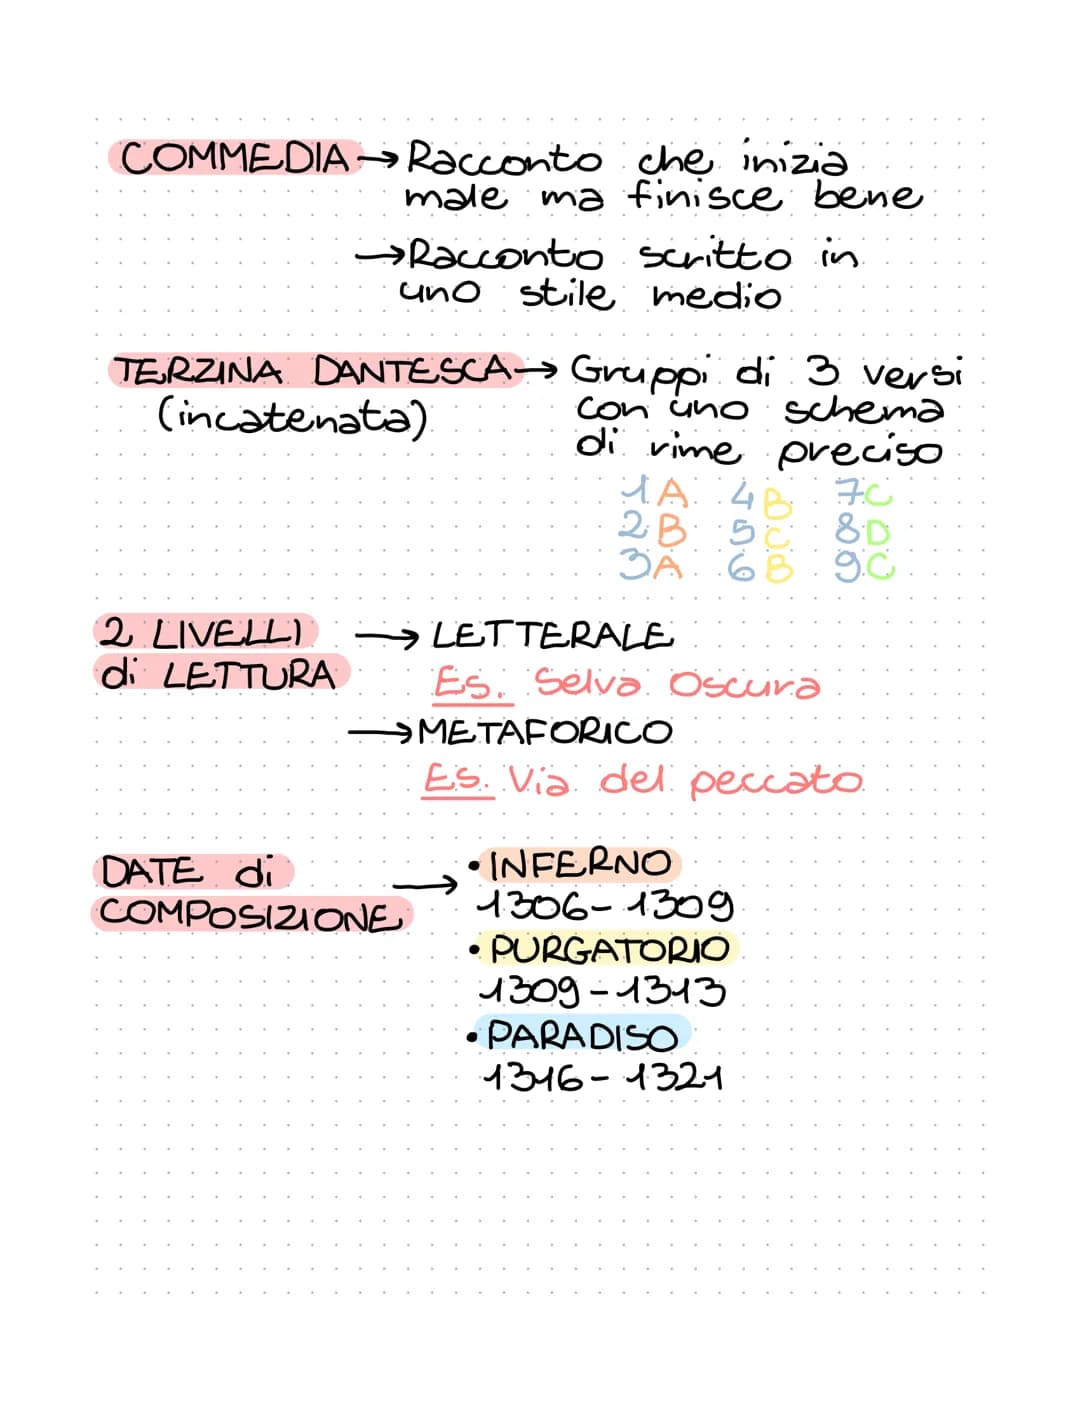 COMMEDIA → Racconto che inizia
male ma finisce bene
→ Racconto scritto in
uno stile medio
TERZINA DANTESCA → Gruppi di 3 versi
(incatenata) con uno schema
di rime preciso
1A 4B 7C
2B 5C 8D
3A 6B 9C
2 LIVELLI → LETTERALE
di LETTURA Es. Selva Oscura
→ METAFORICO
Es. Via del peccato
DATE di → • INFERNO
COMPOSIZIONE 1306-1309
• PURGATORIO
1309-1313
• PARADISO
1316-1321